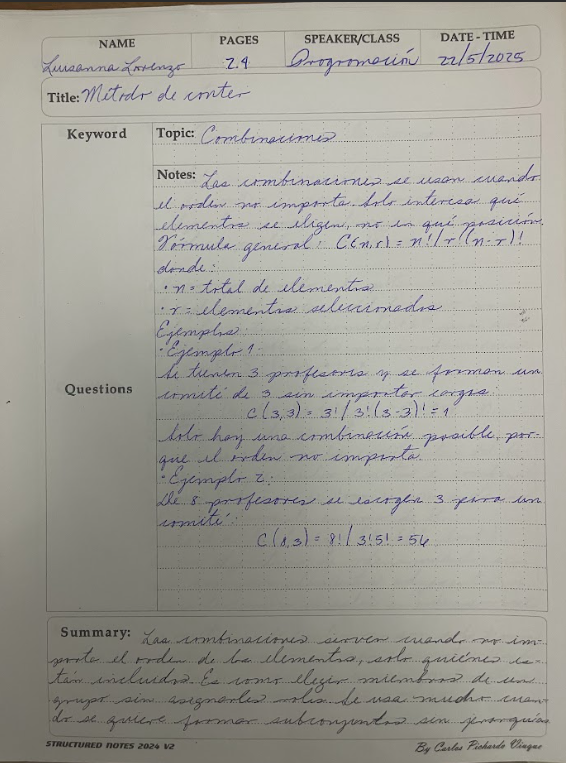 NAME PAGES SPEAKER/CLASS DATE - TIME
Luisanna Lorenzo 24 Programación 22/5/2025
Title: Método de conteo
Keyword Topic: Combinaciones
Notes: Las combinaciones se usan cuando
el orden no importa. Solo interesa qué
elementos se eligen, no en qué posición.
Fórmula general: C(n,r) = n!/r!(n-r)!
donde:
• n = total de elementos
• r = elementos seleccionados
Ejemplos:
• Ejemplo 1:
Se tienen 3 profesores y se forman un
comité de 3 sin importar cargos.
Questions
C(3,3) = 3!/3!(3-3)! = 1
Solo hay una combinación posible, por-
que el orden no importa.
• Ejemplo 2:
De 8 profesores se escogen 3 para un
comité:
C(8,3) = 8!/3!5! = 56
Summary: Las combinaciones sirven cuando no im-
porta el orden de los elementos, solo quiénes es-
tán incluidos. Es como elegir miembros de un
grupo sin asignarles roles. Se usa mucho cuan-
do se quiere formar subconjuntos sin jerarquías
STRUCTURED NOTES 2024 V2 By Carlos Pichardo Vinque